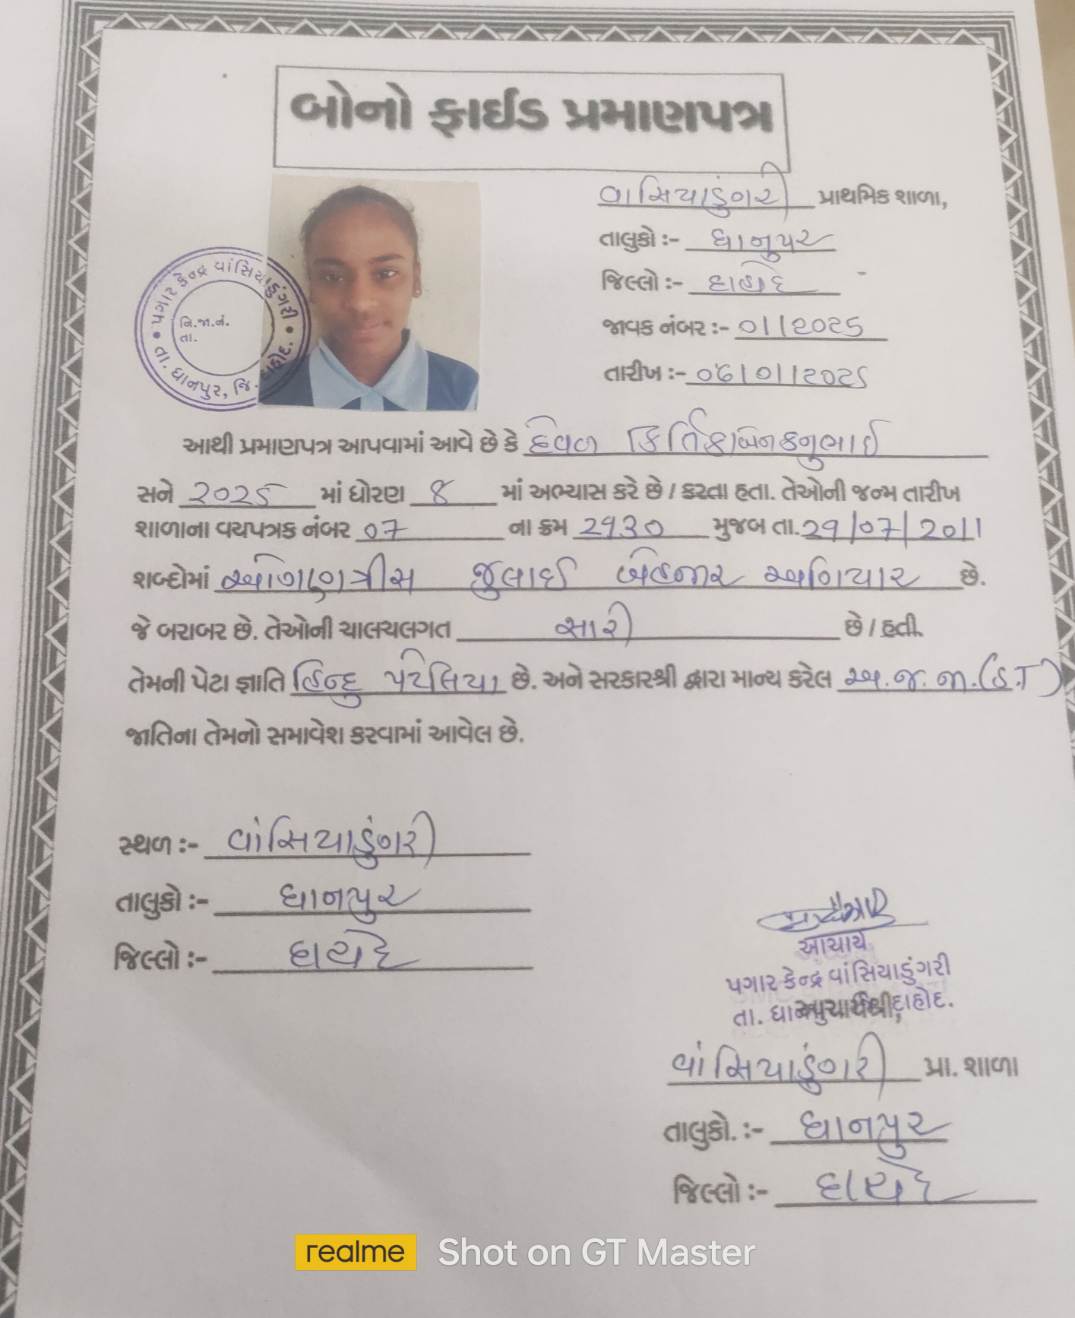 બોનો ફાઈડ પ્રમાણપત્ર
વાસિયાડુંગરી પ્રાથમિક શાળા,
તાલુકો :- ધાનપુર
જિલ્લો :- દાહોદ
જાવક નંબર :- 01/2025
તારીખ :- 06/01/2025
પગાર કેન્દ્ર વાંસિયાડુંગરી
વિ.જા.નં.
તા.
તા. ધાનપુર, જિ. દાહોદ.
આથી પ્રમાણપત્ર આપવામાં આવે છે કે દેવળ કિર્તિકાબેન કનુભાઈ
સને 2025 માં ધોરણ 8 માં અભ્યાસ કરે છે / કરતા હતા. તેઓની જન્મ તારીખ
શાળાના વયપત્રક નંબર 07 ના ક્રમ 2930 મુજબ તા. 29/07/2011
શબ્દોમાં ઓગણત્રીસ જુલાઈ બેહજાર અગિયાર છે.
જે બરાબર છે. તેઓની ચાલચલગત સારી છે / હતી.
તેમની પેટા જ્ઞાતિ હિન્દુ પટેલિયા છે. અને સરકારશ્રી દ્વારા માન્ય કરેલ અ.જ.જા.(S.T)
જાતિના તેમનો સમાવેશ કરવામાં આવેલ છે.
સ્થળ :- વાંસિયાડુંગરી
તાલુકો :- ધાનપુર
જિલ્લો :- દાહોદ
આચાર્ય
પગાર કેન્દ્ર વાંસિયાડુંગરી
તા. ધાનપુર દાહોદ.
આચાર્યશ્રી,
વાંસિયાડુંગરી પ્રા. શાળા
તાલુકો. :- ધાનપુર
જિલ્લો :- દાહોદ
realme Shot on GT Master